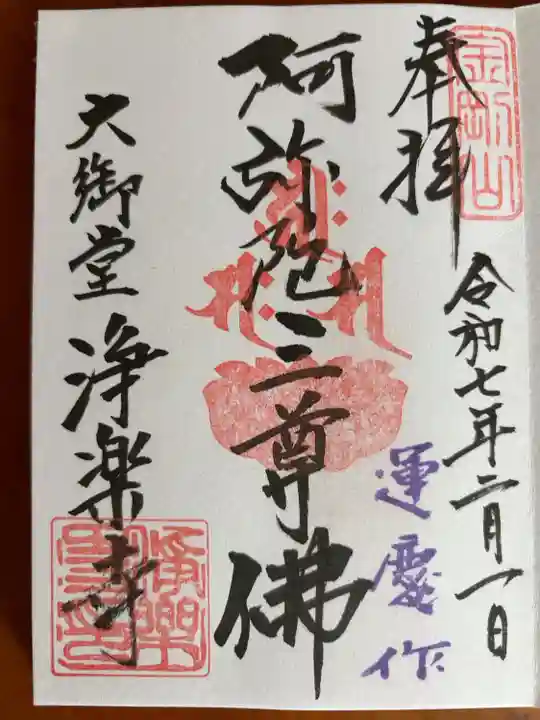 奉拝
金剛山
令和七年二月一日
運慶作
阿弥陀三尊佛
大御堂
浄楽寺